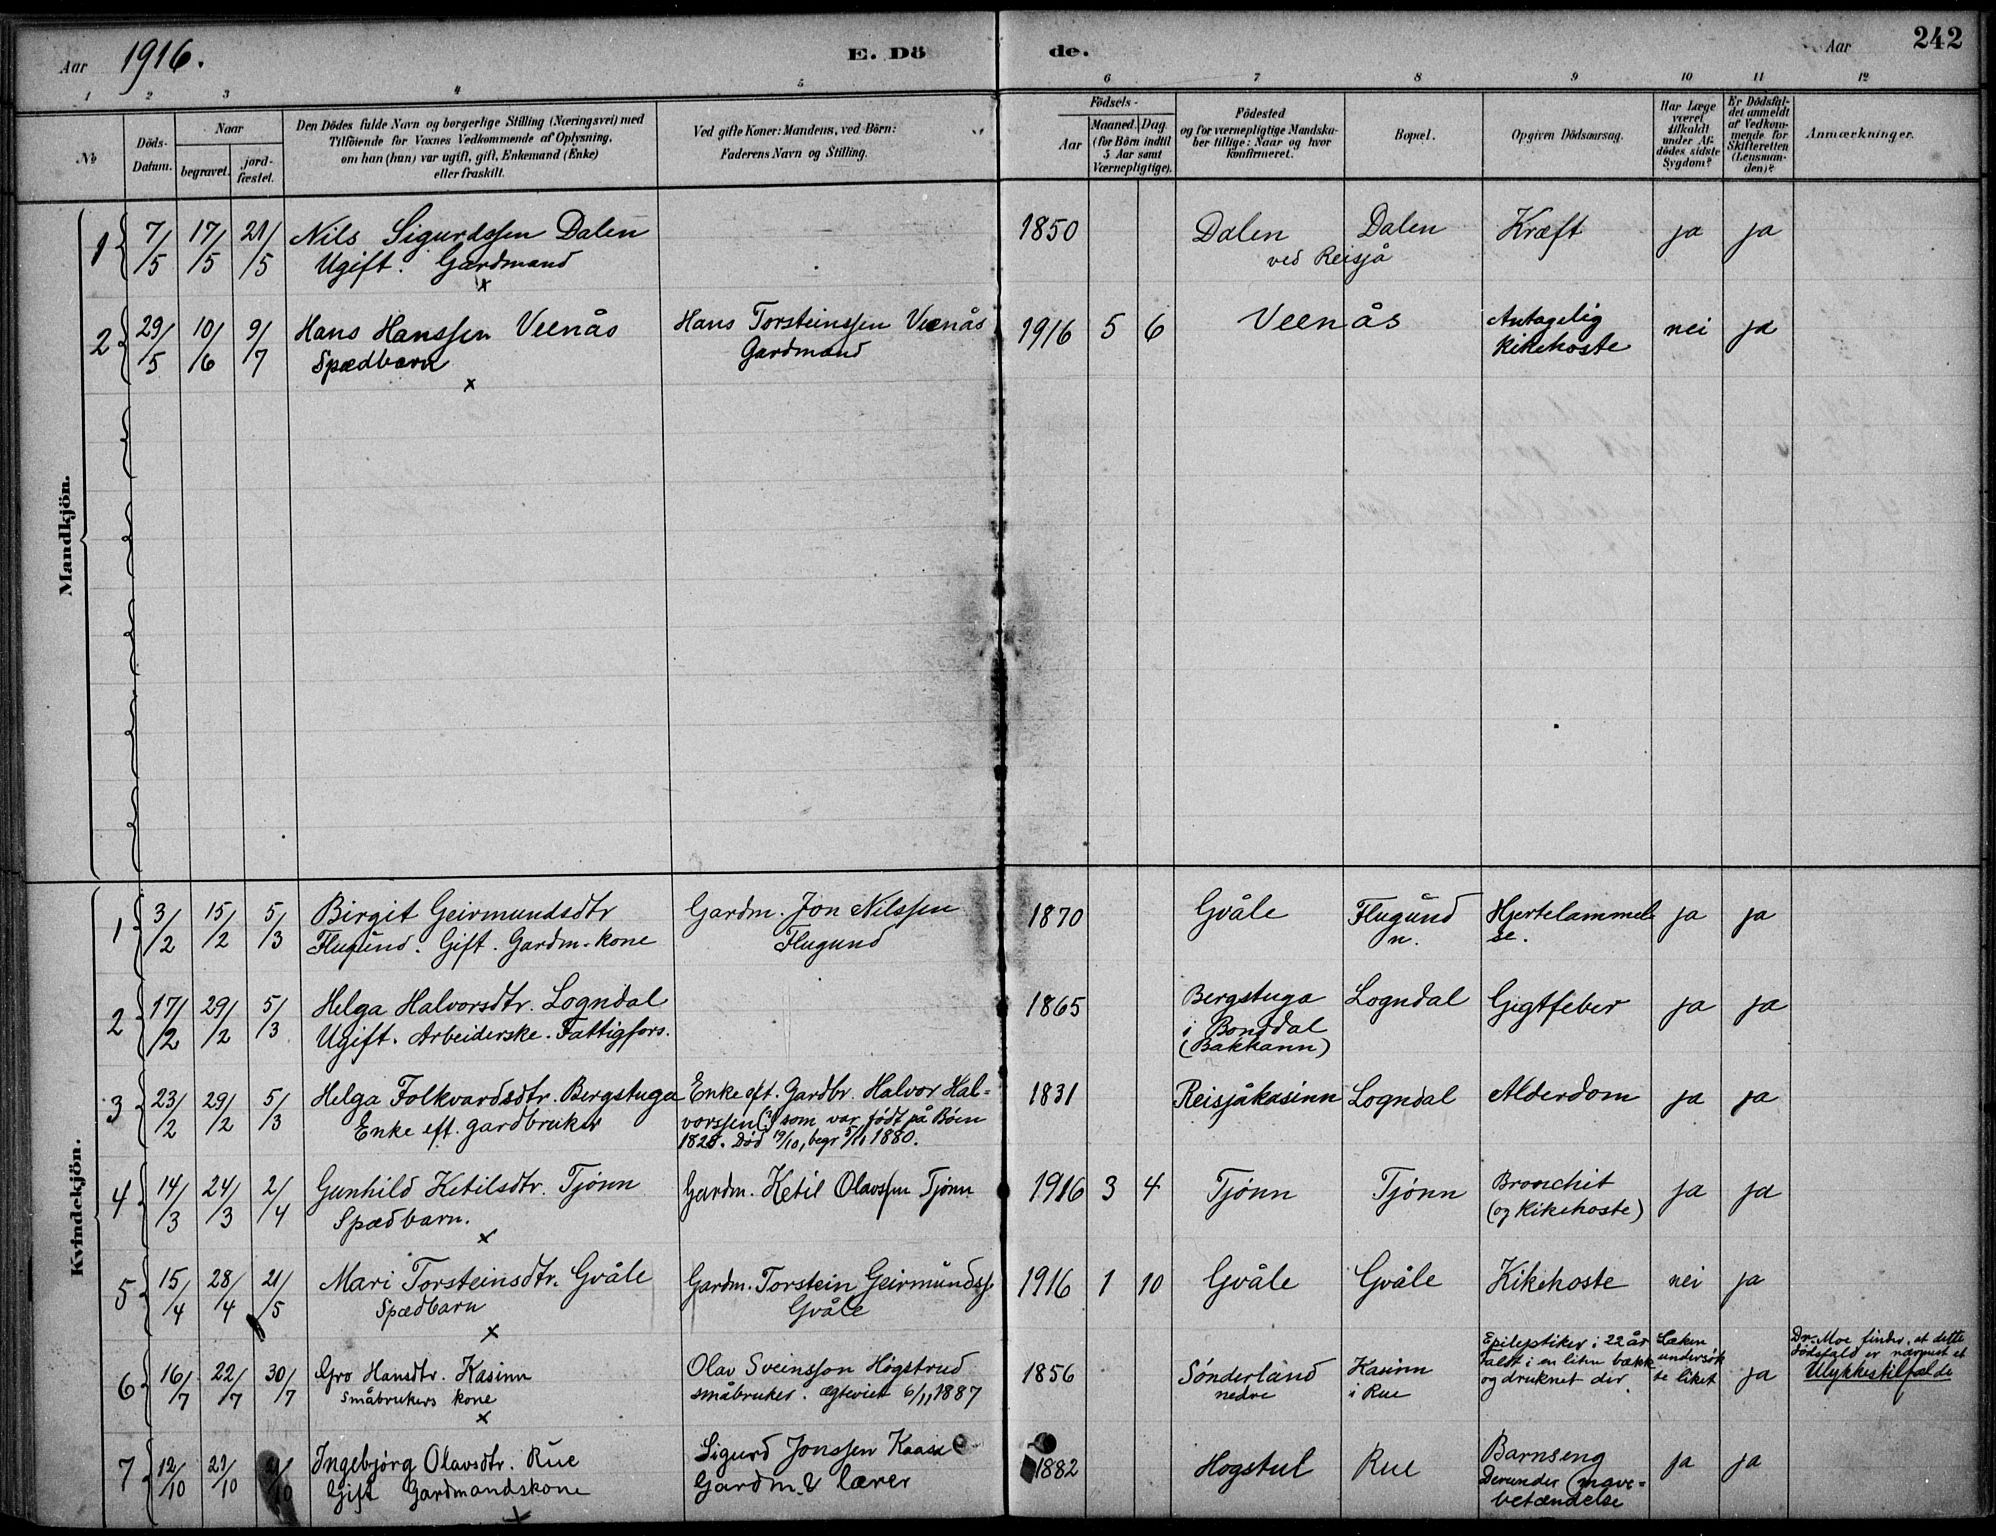 Aar 1916.
E. Dö
de.
Aar
242
1 2 3 4 5 6 7 8 9 10 11 12
No
Döds-
Datum.
Naar
begravet.
jord-
fæstet.
Den Dödes fulde Navn og borgerlige Stilling (Næringsvei) med
Tilföiende for Voxnes Vedkommende af Oplysning,
om han (hun) var ugift, gift, Enkemand (Enke)
eller fraskilt.
Ved gifte Koner: Mandens, ved Börn:
Faderens Navn og Stilling.
Födsels-
Aar
Maaned. Dag.
(for Börn indtil
5 Aar samt
Værnepligtige).
Födested
og for værnepligtige Mandska-
ber tillige: Naar og hvor
konfirmeret.
Bopæl.
Opgiven Dödsaarsag.
Har Læge
været
tilkaldt
under Af-
dödes sidste
Sygdom?
Er Dödsfal-
det anmeldt
af Vedkom-
mende for
Skifteretten
(Lensman-
den)?
Anmærkninger.
Mandkjön.
1 7/5 17/5 21/5 Nils Sigurdssen Dalen 1850 Dalen Dalen Kræft ja ja
Ugift. Gardmand ved Reisjå
x
2 29/5 10/6 9/7 Hans Hanssen Veenås Hans Torsteinssen Veenås 1916 5 6 Veenås Antagelig nei ja
Spædbarn Gardmand kikehoste
x
Kvindekjön.
1 3/2 15/2 5/3 Birgit Geirmundsdtr Gardm. Jon Nilssen 1870 Gvåle Flugund Hjertelammel ja ja
Flugund. Gift. Gardm-kone Flugund n. se.
2 17/2 29/2 5/3 Helga Halvorsdtr. Logndal 1865 Bergstuga Logndal Gigtfeber ja ja
Ugift. Arbeiderske. Fattigfors. i Bonddal
(Bakkann)
3 23/2 29/2 5/3 Helga Folkvardsdtr. Bergstuga Enke eft. Gardbr. Halvor Hal- 1831 Reisjåkasinn Logndal Alderdom ja ja
Enke eft. gardbruker vorssen (?) som var født på Bøen
Død 19/10, begr 1880.
4 14/3 24/3 2/4 Gunhild Ketilsdtr. Tjønn Gardm. Ketil Olavssen Tjønn 1916 3 4 Tjønn Tjønn Bronchit ja ja
Spædbarn. (og Kikehoste)
x
5 15/4 28/4 21/5 Mari Torsteinsdtr. Gvåle Gardm. Torstein Geirmundss 1916 1 10 Gvåle Gvåle Kikehoste nei ja
Spædbarn Gvåle
x
6 16/7 22/7 30/7 Gro Hansdtr. Kasinn Olav Sveinsson Høgstrud 1856 Sønderland Kasinn Epileptiker i 22 år Læken ja Dr. Moe finder, at dette
Småbrukers kone småbruker. ægteviet 6/11 1887 nedre i Rue Faldt i en liten bækk undersøk dødsfald er nærmest et
x og druknet der te liket Ulykkestilfælde
7 12/10 21/10 Ingebjørg Olavsdtr. Rue Sigurd Jonssen Kaase 1882 Hogstul Rue Barnseng ja ja
Gift Gardmandskone Gardm. & lærer Derunder mave-
x betændelse